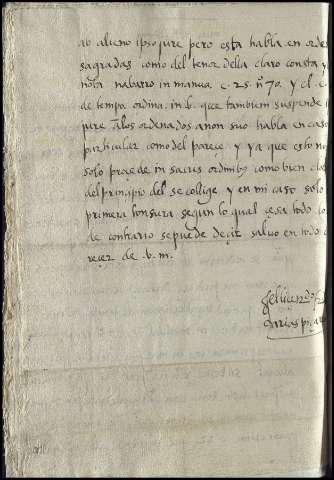 ab alieno ipso jure pero esta habla en orde
sagradas como del tenor della claro consta y
nota nabarro in manua c. 25. nº 70. y el c.
de tempo. ordina. in. 6. que tambien suspende i
jure a los ordenados a non suo habla en caso
particular como del pareçe. y ya que esto no
solo proçede in sacris ordinibus como bien cla
del principio del se collige. y en mi caso solo
primera tonsura segun lo qual çesa todo lo
de contrario se puede deçir salvo en todo e
reçer de .v.m.